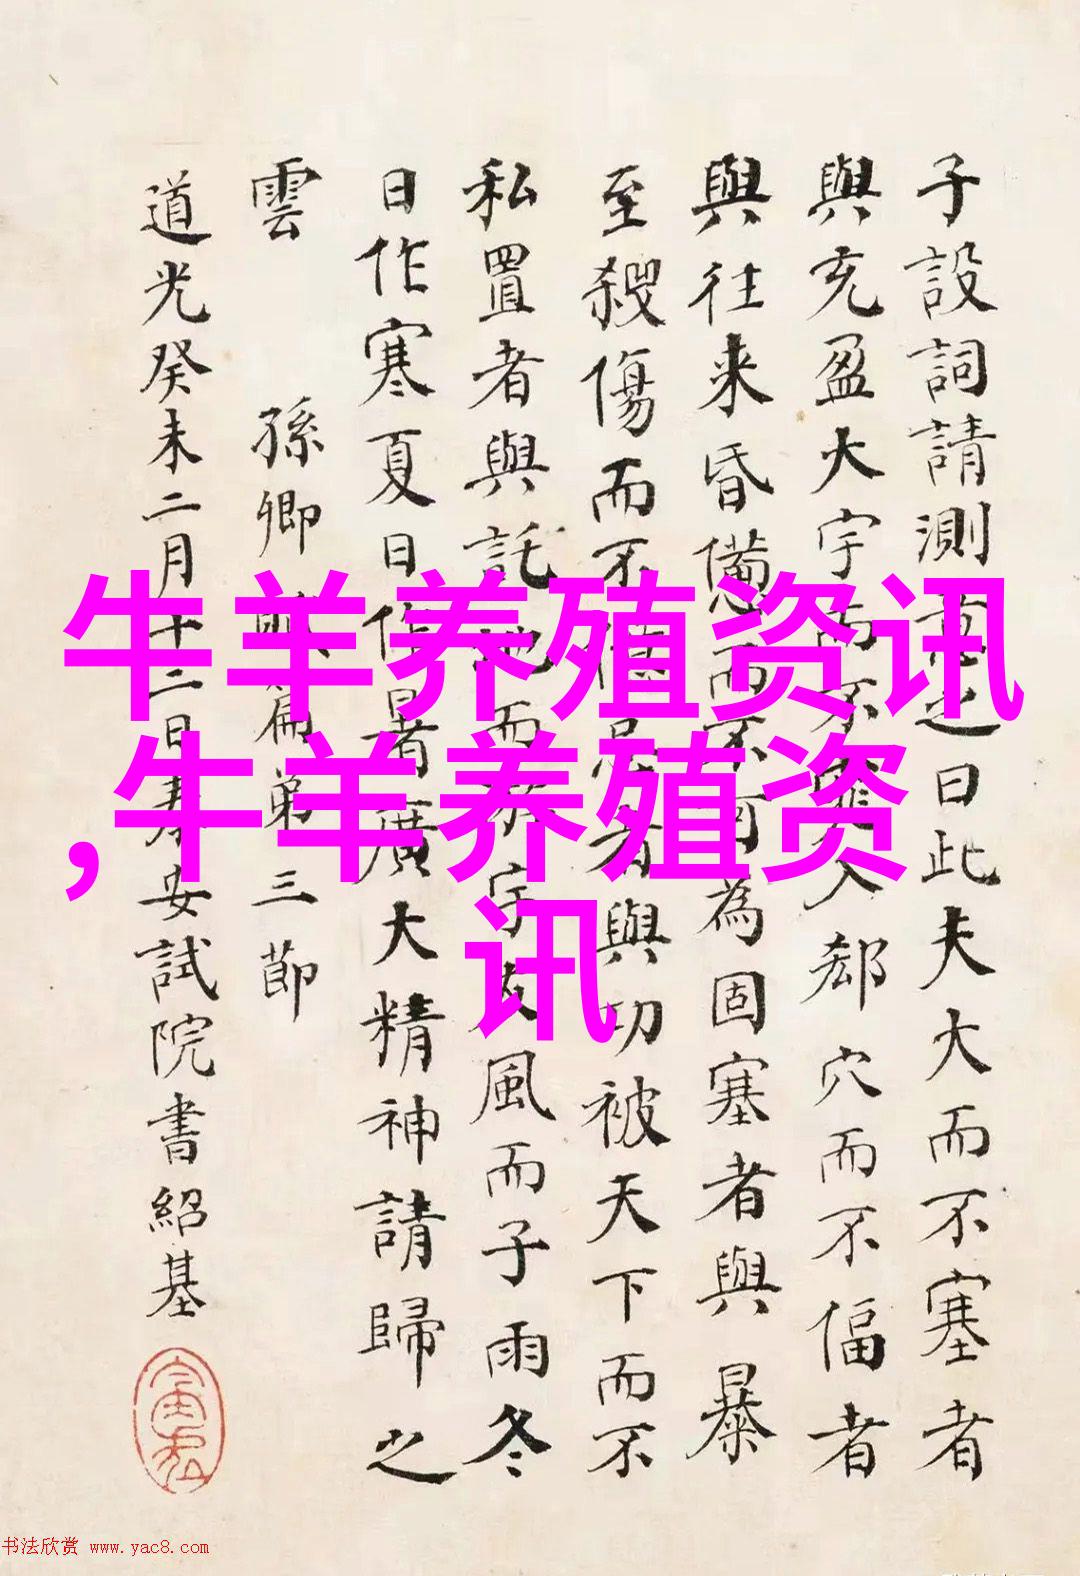 子設詞請測之曰此夫大而不塞者
與充盈大宇而不入郄穴而不偪者
與往来昏憊而不可為固塞者與暴
至殺傷而不億忌者與功被天下而不
私置者與託地而游宇友風而子雨冬
日作寒夏日作暑廣大精神請歸之
雲 孫卿賦篇弟三節
道光癸未二月十二日泰安試院書紹基
牛羊养殖资讯
,牛羊养殖资
讯
书法欣赏 www.yac8.com